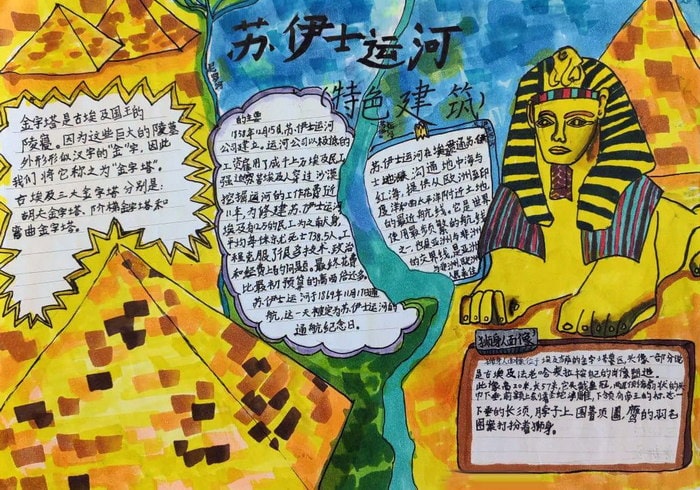 苏伊士运河
(特色建筑)
尼罗河
金字塔是古埃及国王的
陵墓。因为这些巨大的陵墓
外形形似汉字的"金"字,因此
我们将它称之为"金字塔"。
古埃及三大金字塔分别是:
胡夫金字塔、阶梯金字塔和
弯曲金字塔。
1858年12月15日,苏伊士运河
公司建立。运河公司以极低的
工资雇用了成千上万埃及民工
强迫贫苦埃及人穿过沙漠
挖掘运河的工作花费近
11年,为修建苏伊士运河
埃及有12万的民工为之献人身,
程克服了很多技术、政治
和经费上的问题。最终花费
比最初预算的高出倍还多。
苏伊士运河于1869年11月17日通
航,这一天被定为苏伊士运河的
通航纪念日。
苏伊士运河在
士地峡,沟通地中海与
红海,提供从欧洲至印
度洋和西太平洋附近土地
的最近航线。它是世界
使用最频繁的航线
之一,也是亚洲与非洲
的交界线,是亚洲
狮身人面像
狮身人面像位于埃及
是古埃及法老哈夫拉按自己的肖像塑造。
此像高20米,长57米,它头戴皇冠,两
下垂的长须,脖子上围着项圈,鹰的羽毛
图案打扮着狮身。